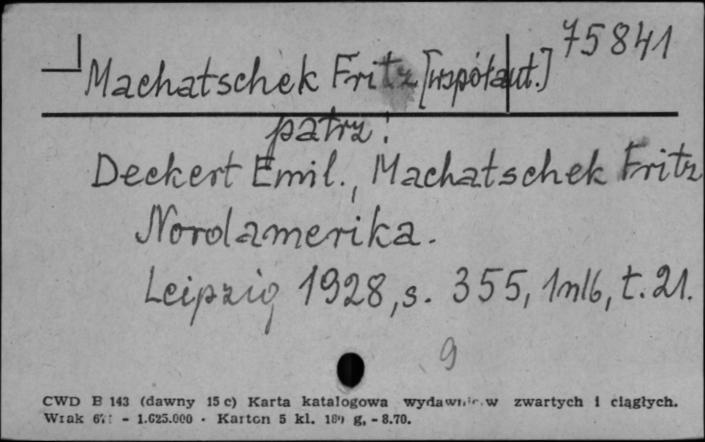 75841
Machatschek Fritz [współaut.]
patrz:
Deckert Emil., Machatschek Fritz
Nordamerika.
Leipzig 1928, s. 355, 1nlb, t. 21.
9
CWD B 143 (dawny 15 c) Karta katalogowa wydawnic.w zwartych i ciągłych.
Wzak - 1.625.000 - Karton 5 kl. g. - 8.70.